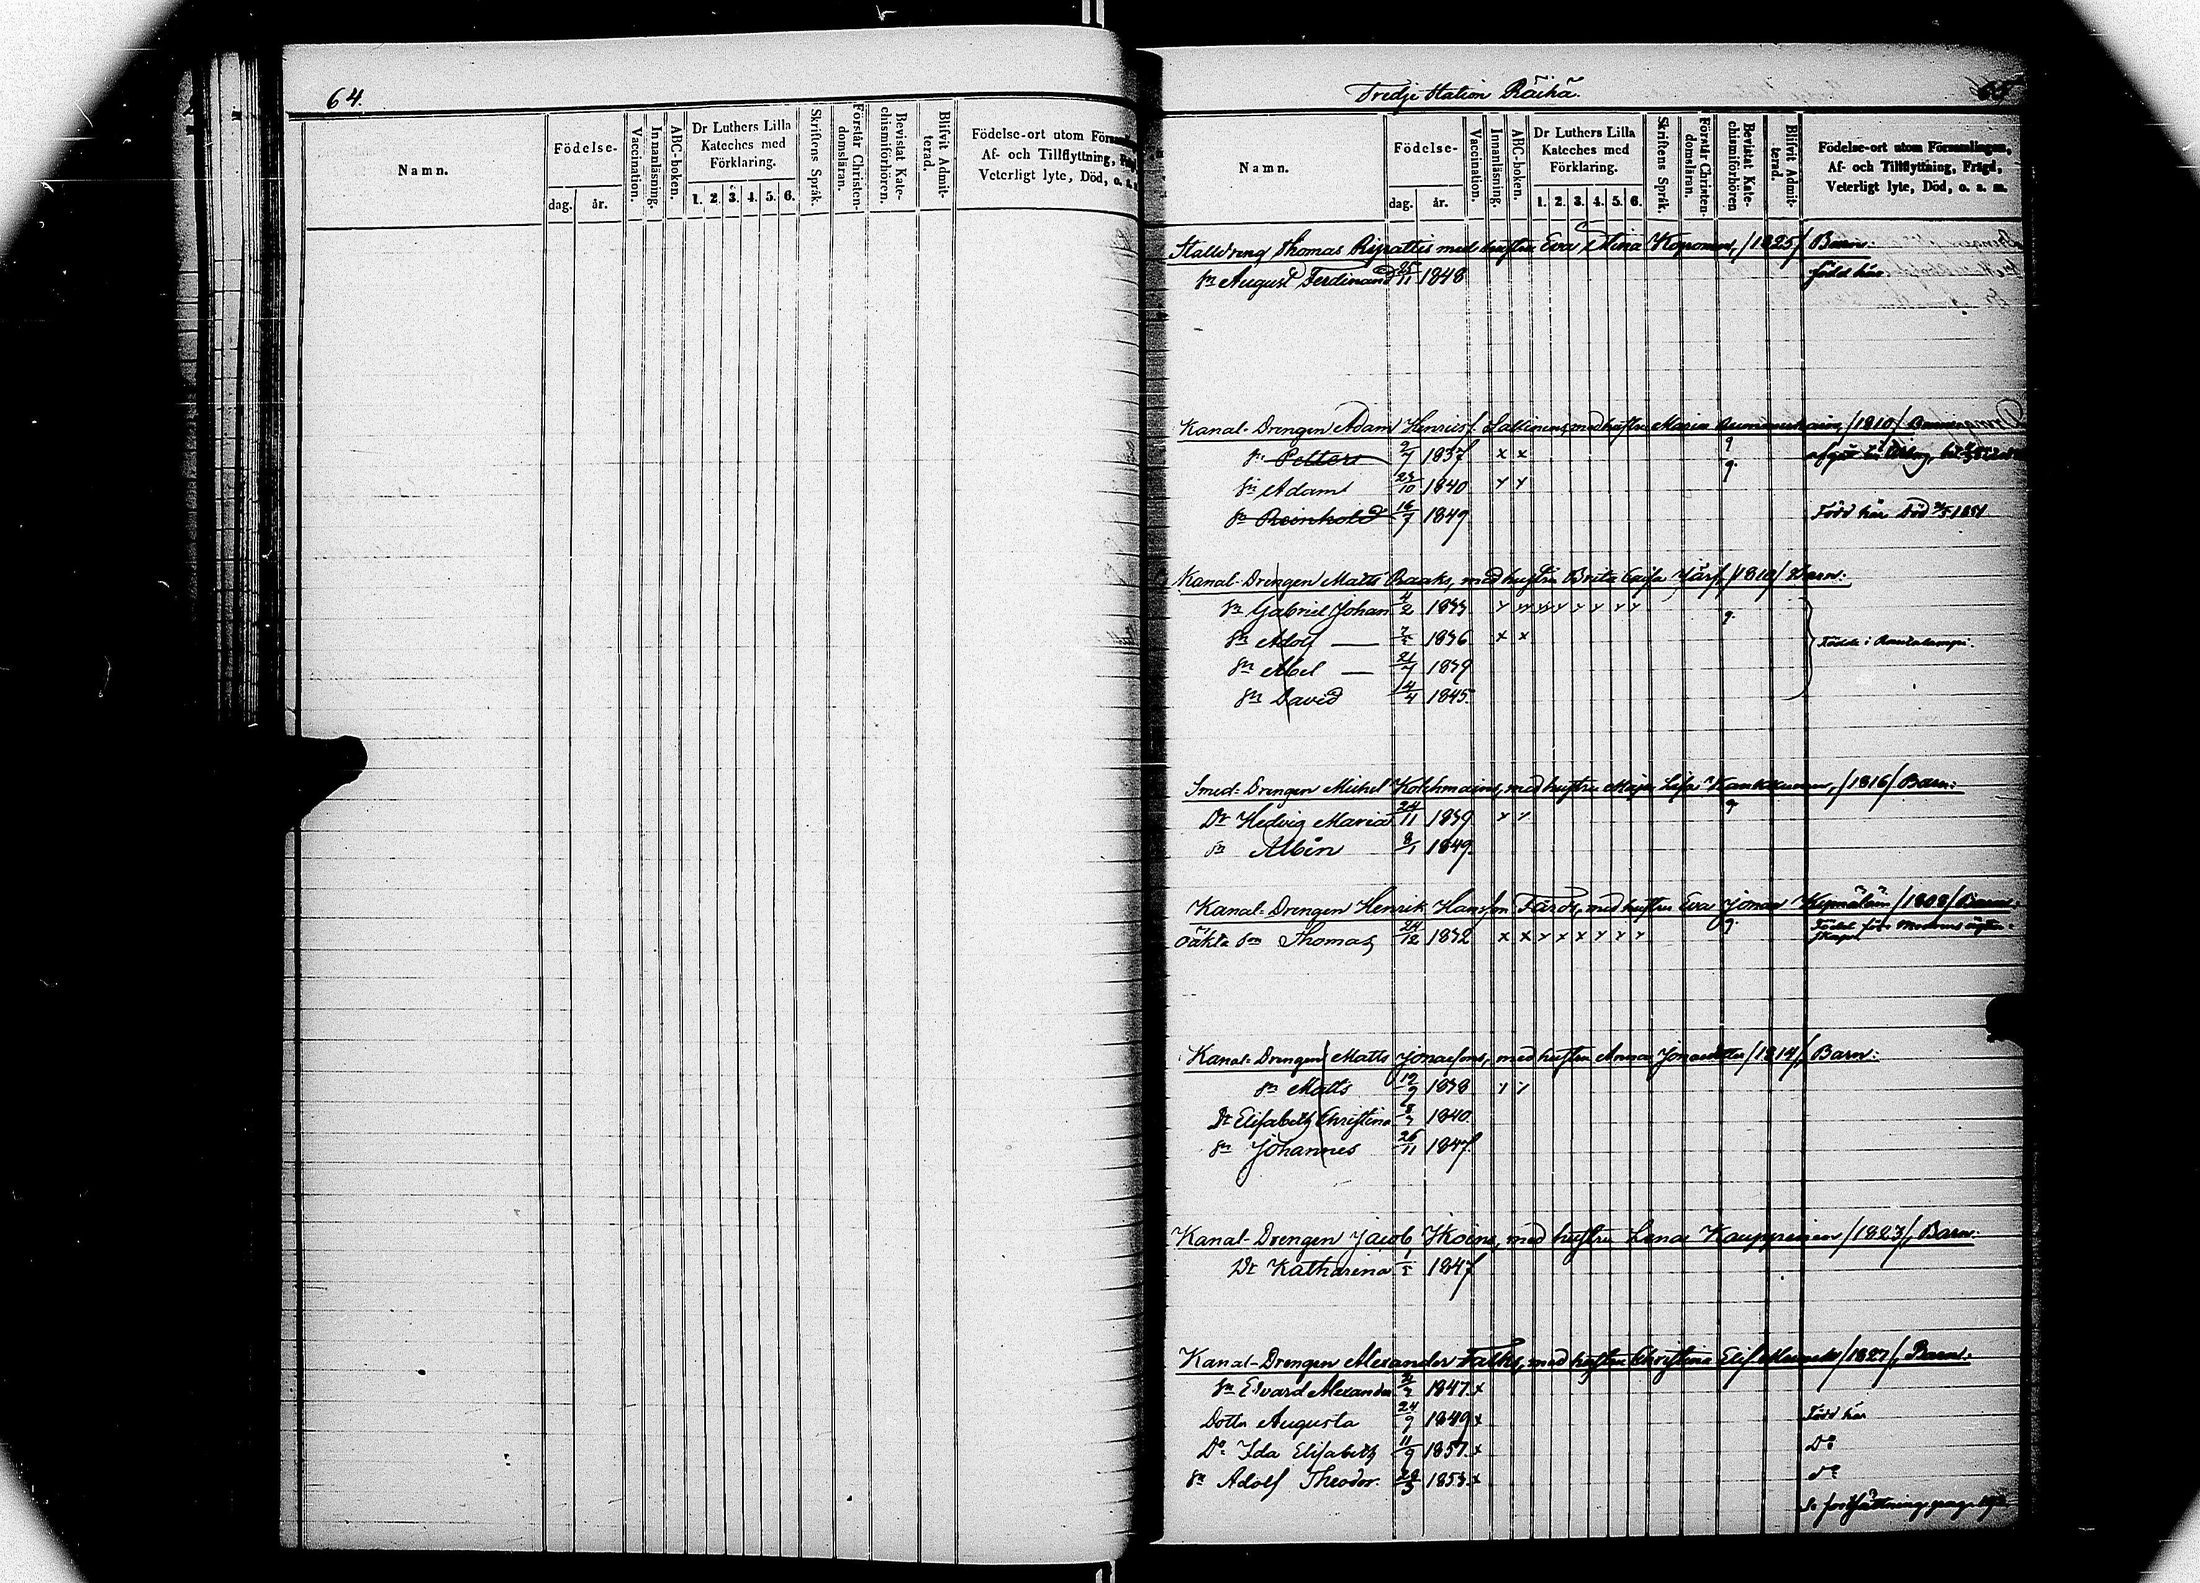 64.
Namn.
Födelse-
dag. år.
Vaccination.
Innanläsning.
ABC-boken.
Dr Luthers Lilla
Kateches med
Förklaring.
1. 2. 3. 4. 5. 6.
Skriftens Språk.
Förstår Christen-
domsläran.
Bevistat Kate-
chismiförhören.
Blifvit Admit-
terad.
Födelse-ort utom
Af- och Tillflyttning,
Veterligt lyte, Död, o. s.
Tredje Station Räihä.
65
Namn.
Födelse-
dag. år.
Vaccination.
Innanläsning.
ABC-boken.
Dr Luthers Lilla
Kateches med
Förklaring.
1. 2. 3. 4. 5. 6.
Skriftens Språk.
Förstår Christen-
domsläran.
Bevistat Kate-
chismiförhören
Blifvit Admit-
terad.
Födelse-ort utom Församlingen,
Af- och Tillflyttning, Frägd,
Veterligt lyte, Död, o. s. m.
Thomas med hustru Eva Stina /1825/ Barn:
Sn August Ferdinand 25/11 1848 född här
Kanal-Drengen Adam Henriks. med hustru Maria /1810/
Sn Petter 9/7 1837 x x
Sn Adam 23/10 1840 x x
Sn Reinhold 16/7 1849 Född här Död 1851
Kanal-Drengen Matts Raaks, med hustru Brita Caisa Järf, /1810/ Barn:
Sn Gabriel Johan 4/2 1833
Sn Adolf — 1836 x x Födde i Rautalampi.
Sn Abel — 21/7 1839
Sn David 14/4 1845.
Smed-Drengen Michel Kolehmain, med hustru Maja Lisa /1816/ Barn:
Dr Hedvig Maria 24/11 1839 x x
Sn Albin 8/1 1849.
Kanal-Drengen Henrik Hansson Färdi, med hustru Eva Jonas /1808/ Barn:
oäkta Sn Thomas 24/12 1832 x x x x x x x x Född för Modrens
Kanal-Drengen Matts Jonassons, med hustru Anna Jonaedotter /1814/, Barn:
Sn Matts 19/9 1838 x x
Dr Elisabeth Christina 1840.
Sn Johannes 26/11 1847.
Kanal-Drengen Jacob Ikoine, med hustru Lena Kauppinen /1823/, Barn:
Dr Katharina 1/5 1847
Kanal-Drengen Alexander Falks, med hustru Christina Elis /1827/, Barn:
Sn Edvard Alexander 1847. x
Dottr Augusta 24/9 1849 x Född här
Dr Ida Elisabeth 11/9 1851. x Do
Sn Adolf Theodor. 1853. x do
Se fortsättning pag.